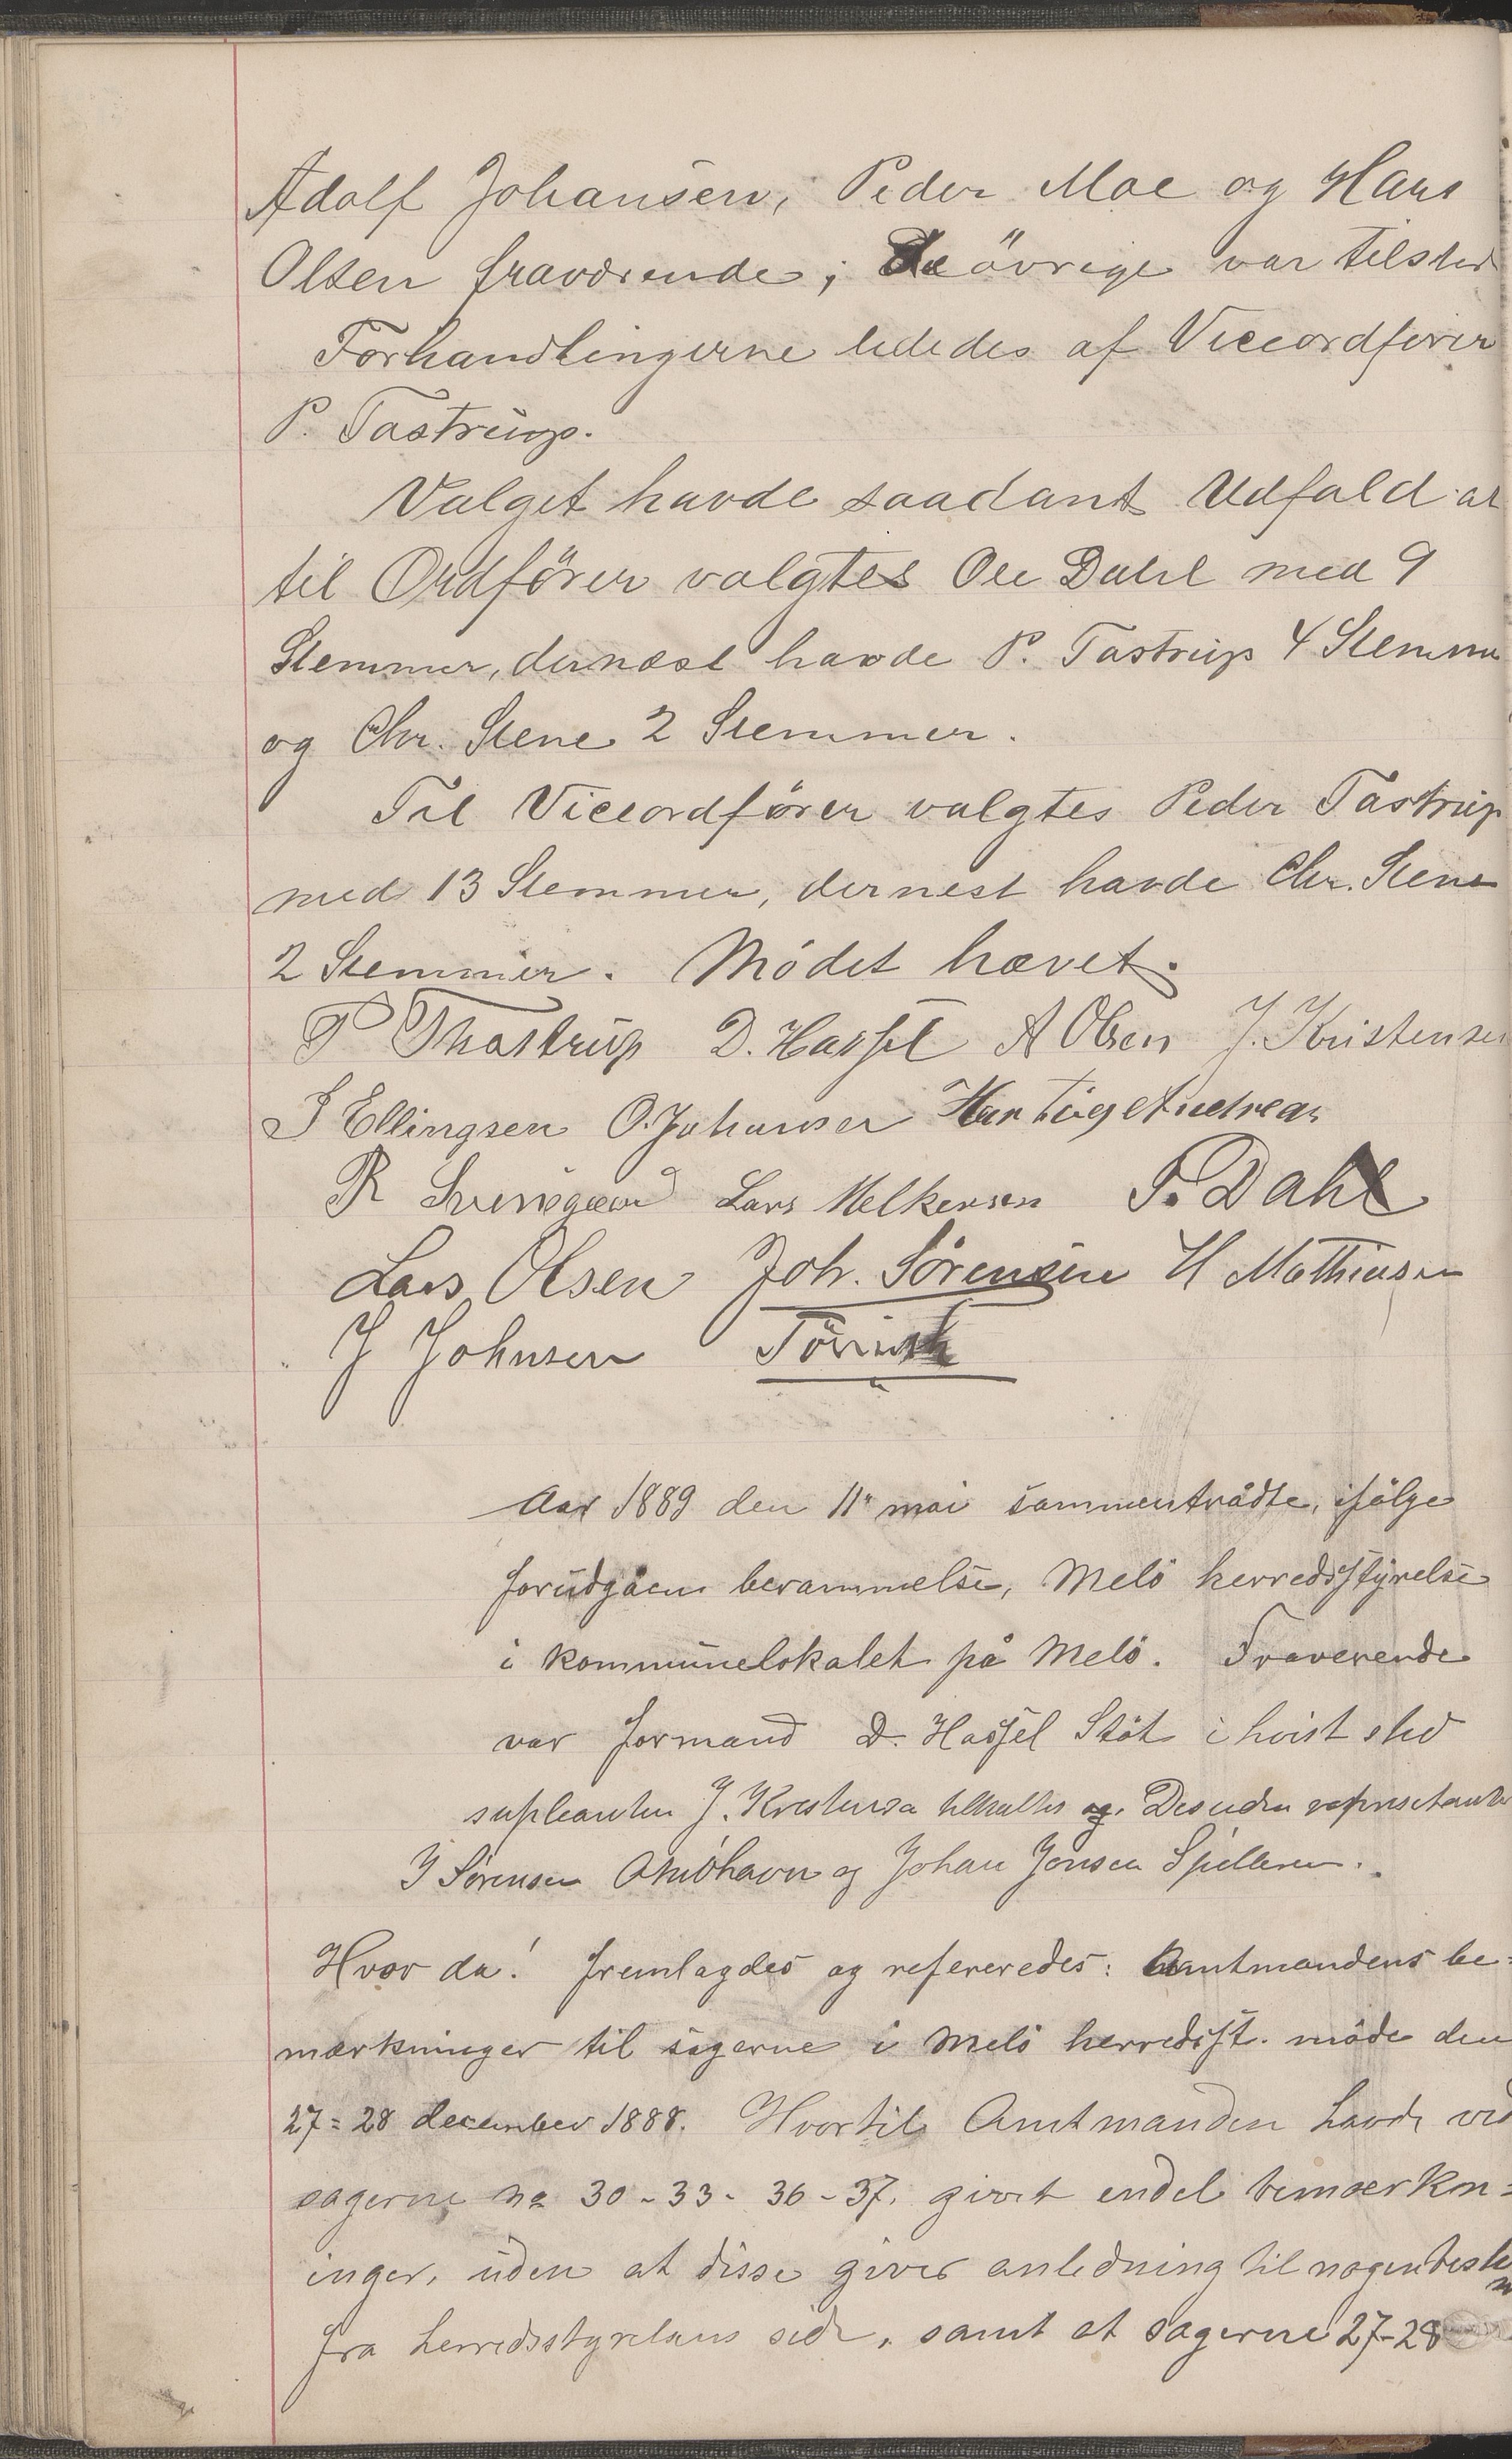 Adolf Johansen, Peder Moe og Hans
Olsen fraværende; De övrige var tilsted
Forhandlingerne lededes af Viceordfører
P. Tastrup.
Valget havde saadant Udfald at
til Ordförer valgtes Ole Dahl med 9
Stemmer, dernæst havde P. Tastrup 4 Stemmer
og Chr. Stene 2 Stemmer.
Til Viceordförer valgtes Peder Tastrup
med 13 Stemmer, dernest havde Chr. Stene
2 Stemmer. Mödet hævet.
P Thastrup D. Hassel A Olsen J. Kristensen
J Ellingsen O. Johanser Hartvig Andreas
R Svensgaard Lars Melkersen T. Dahl
Lars Olsen Joh. Sörensen H Mathiesen
J Johnsen
Aar 1889 den 11te mai sammentrådte, ifölge
forudgåen berammelse, Melö herredsstyrelse
i kommunelokalet på Melö. Fraverende
var formand D. Hassel Stöt i hvist sted
supleanten J. Kristensen tilkaltes og. Desuden representante
J Sörensen Åmöhavn og Johan Jonsen Spilderen.
Hvor da! fremlagdes og refereredes: Amtmandens be=
mærkninger til sagerne i Melö herredsst. möde den
27=28 december 1888. Hvortil Amtmanden havde ved
sagerne no 30-33-36-37. givet endel bemærkn=
inger, uden at disse giver anledning til nogen
fra herredsstyrelsens side, samt at sagerne 27-28